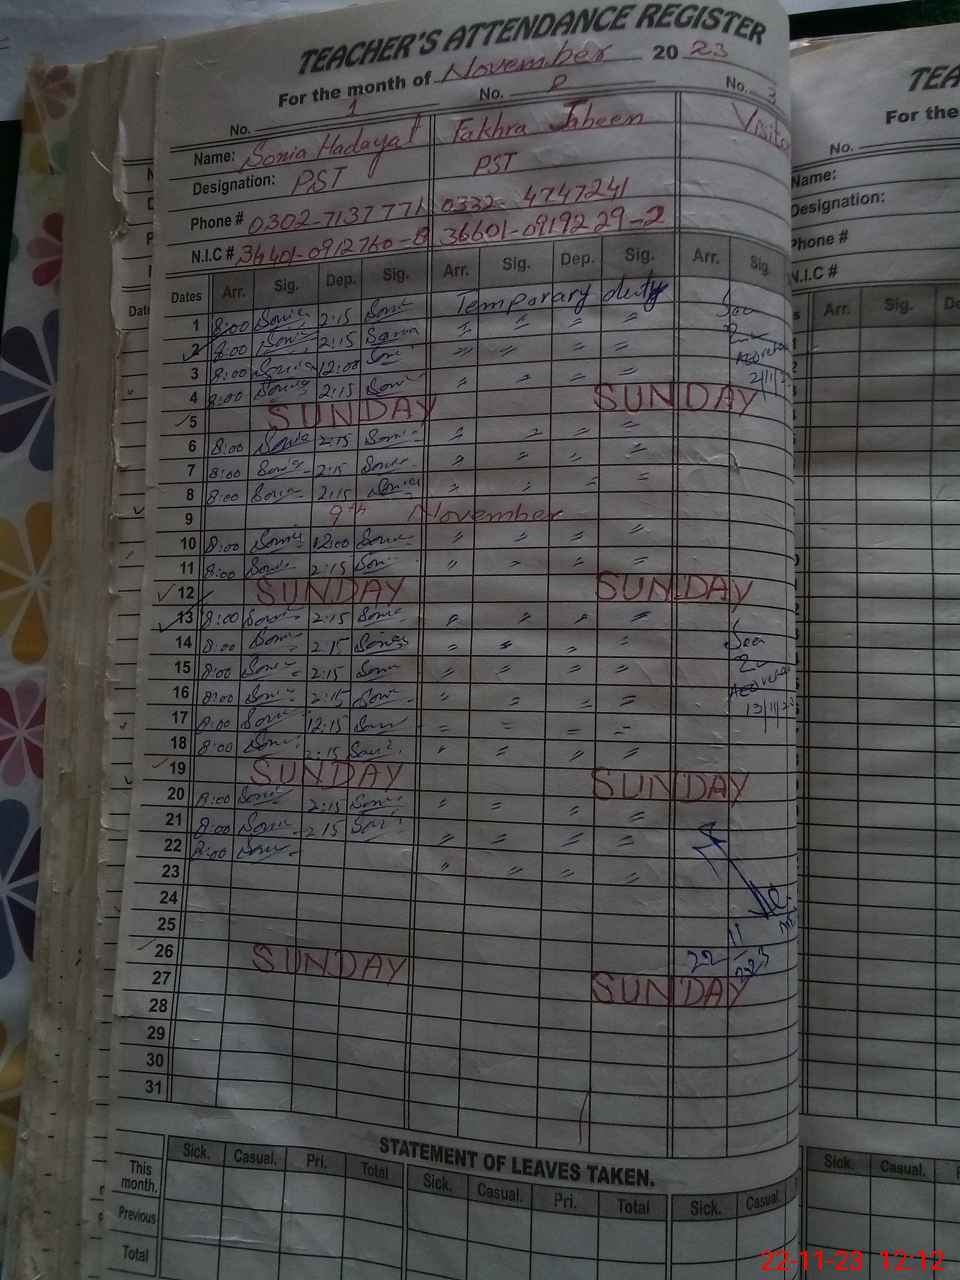 TEACHER'S ATTENDANCE REGISTER
For the month of November 20 23
No. 1 No. 2 No. 3
Name: Sonia Hadayat Fakhra Jabeen Visito
Designation: PST PST
Phone # 0302-7137771 0332-4747241
N.I.C # 34401-0912760-8 36601-0919229-2
Dates Arr. Sig. Dep. Sig. Arr. Sig. Dep. Sig. Arr. Sig.
1 8:00 Sonia 2:15 Soni Temporary duty
2 8:00 Soni 2:15 Sonia " " " "
3 8:00 Sonia 12:00 Soni " " " "
4 8:00 Sonia 2:15 Soni " " " " 2/11/
5 SUNDAY SUNDAY
6 8:00 Sonia 2:15 Sonia " " " "
7 8:00 Sonia 2:15 Sonia " " " "
8 8:00 Sonia 2:15 Sonia " " " "
9 9th November
10 8:00 Sonia 12:00 Sonia " " " "
11 8:00 Sonia 2:15 Soni " " " "
12 SUNDAY SUNDAY
13 8:00 Sonia 2:15 Sonia " " " "
14 8:00 Soni 2:15 Sonia " " " "
15 8:00 Sonia 2:15 Sonia " " " "
16 8:00 Soni 2:15 Soni " " " "
17 8:00 Soni 12:15 Soni " " " " 13/11/23
18 8:00 Soni 2:15 Soni " " " "
19 SUNDAY SUNDAY
20 8:00 Sonia 2:15 Sonia " " " "
21 8:00 Sonia 2:15 Soni " " " "
22 8:00 Soni " " " "
23
24
25
26 SUNDAY 22 11 2023
27 SUNDAY
28
29
30
31
STATEMENT OF LEAVES TAKEN.
Sick. Casual. Pri. Total Sick. Casual. Pri. Total Sick. Casual.
This month.
Previous
Total
TEA
For the
No.
Name:
Designation:
Phone #
N.I.C #
Arr. Sig. De
Sick. Casual.
22-11-23 12:12